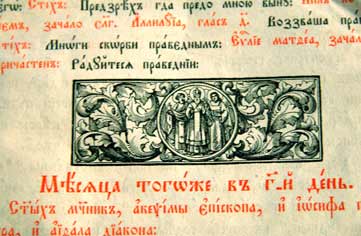 Стíхъ: Предзрѣхъ гдⷭ҇а предо мною выну:
зачало сл҃г. Аллилꙋ́їа, гласъ д҃. Воззваша пра
тíхъ: Мнѡги скѡрби првⷣнымъ: Еѵⷢ҇лїе матѳеа, зача
ричастенъ: Радꙋйтеся праведнїи:
Мѣсяца тогѡже въ г҃-й день.
Ст҃ыхъ мч҃никъ, акеѱимы епⷭ҇копа, и҆ іѡсифа
а, и҆ аїѳала дїакона: